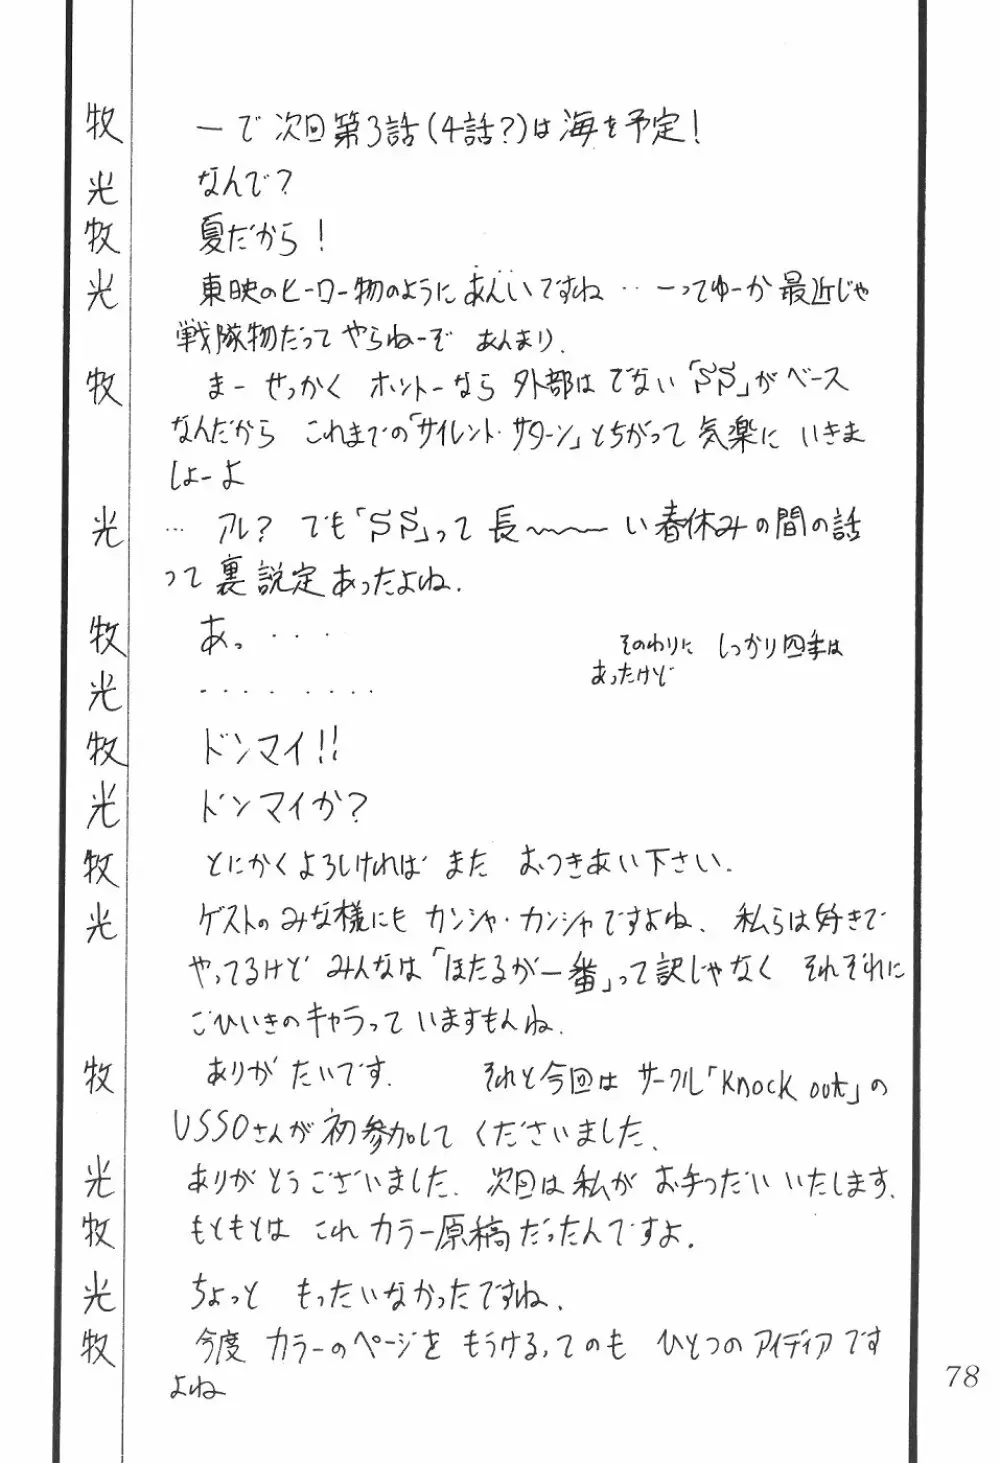 牧 ーで 次回第3話(4話?)は海を予定!
光 なんで?
牧 夏だから!
光 東映のヒーロー物のように あんいですね‥ーってゆーか 最近じゃ
戦隊物だって やらねーぞ あんまり.
牧 まー せっかく ホントーなら 外部は でない「SS」がベース
なんだから これまでの「サイレント・サターン」とちがって 気楽に いきま
しょーよ
光 … アレ? でも「SS」って 長〜〜〜い春休みの間の話
って 裏設定あったよね.
牧 あっ・・・・
そのわりに しっかり四季は
あったけど
光 ‥‥ ‥‥
牧 ドンマイ!!
光 ドンマイか?
牧 とにかくよろしければ また おつきあい下さい.
光 ゲストのみな様にも カンシャ・カンシャですよね. 私らは好きで
やってるけど みんなは「ほたるが一番」って訳じゃなく それぞれに
ごひいきのキャラって いますもんね.
牧 ありがたいです. それと今回は サークル「Knock out」の
USSOさんが 初参加して くださいました.
光 ありがとうございました. 次回は私が お手つだい いたします.
牧 もともとは これ カラー原稿だったんですよ.
光 ちょっと もったいなかったですね.
牧 今度 カラーのページを もうける,てのも ひとつのアイディアです
よね
78